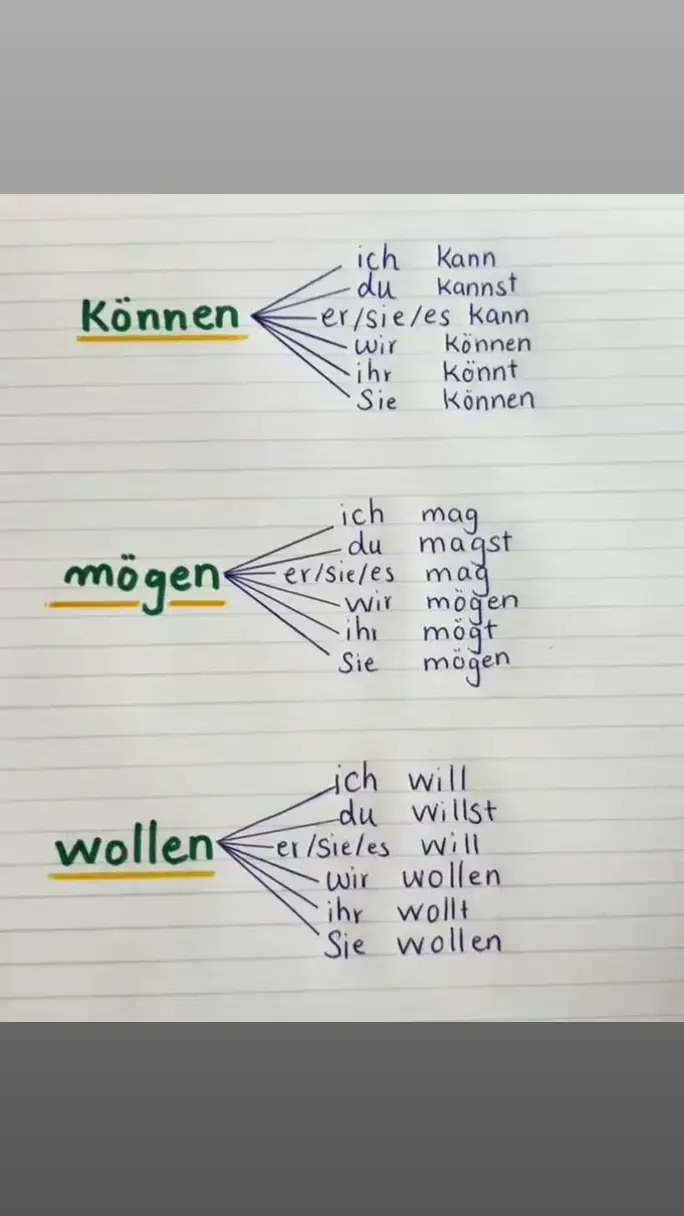 können
ich kann
du kannst
er/sie/es kann
wir können
ihr könnt
Sie können
mögen
ich mag
du magst
er/sie/es mag
wir mögen
ihr mögt
Sie mögen
wollen
ich will
du willst
er/sie/es will
wir wollen
ihr wollt
Sie wollen